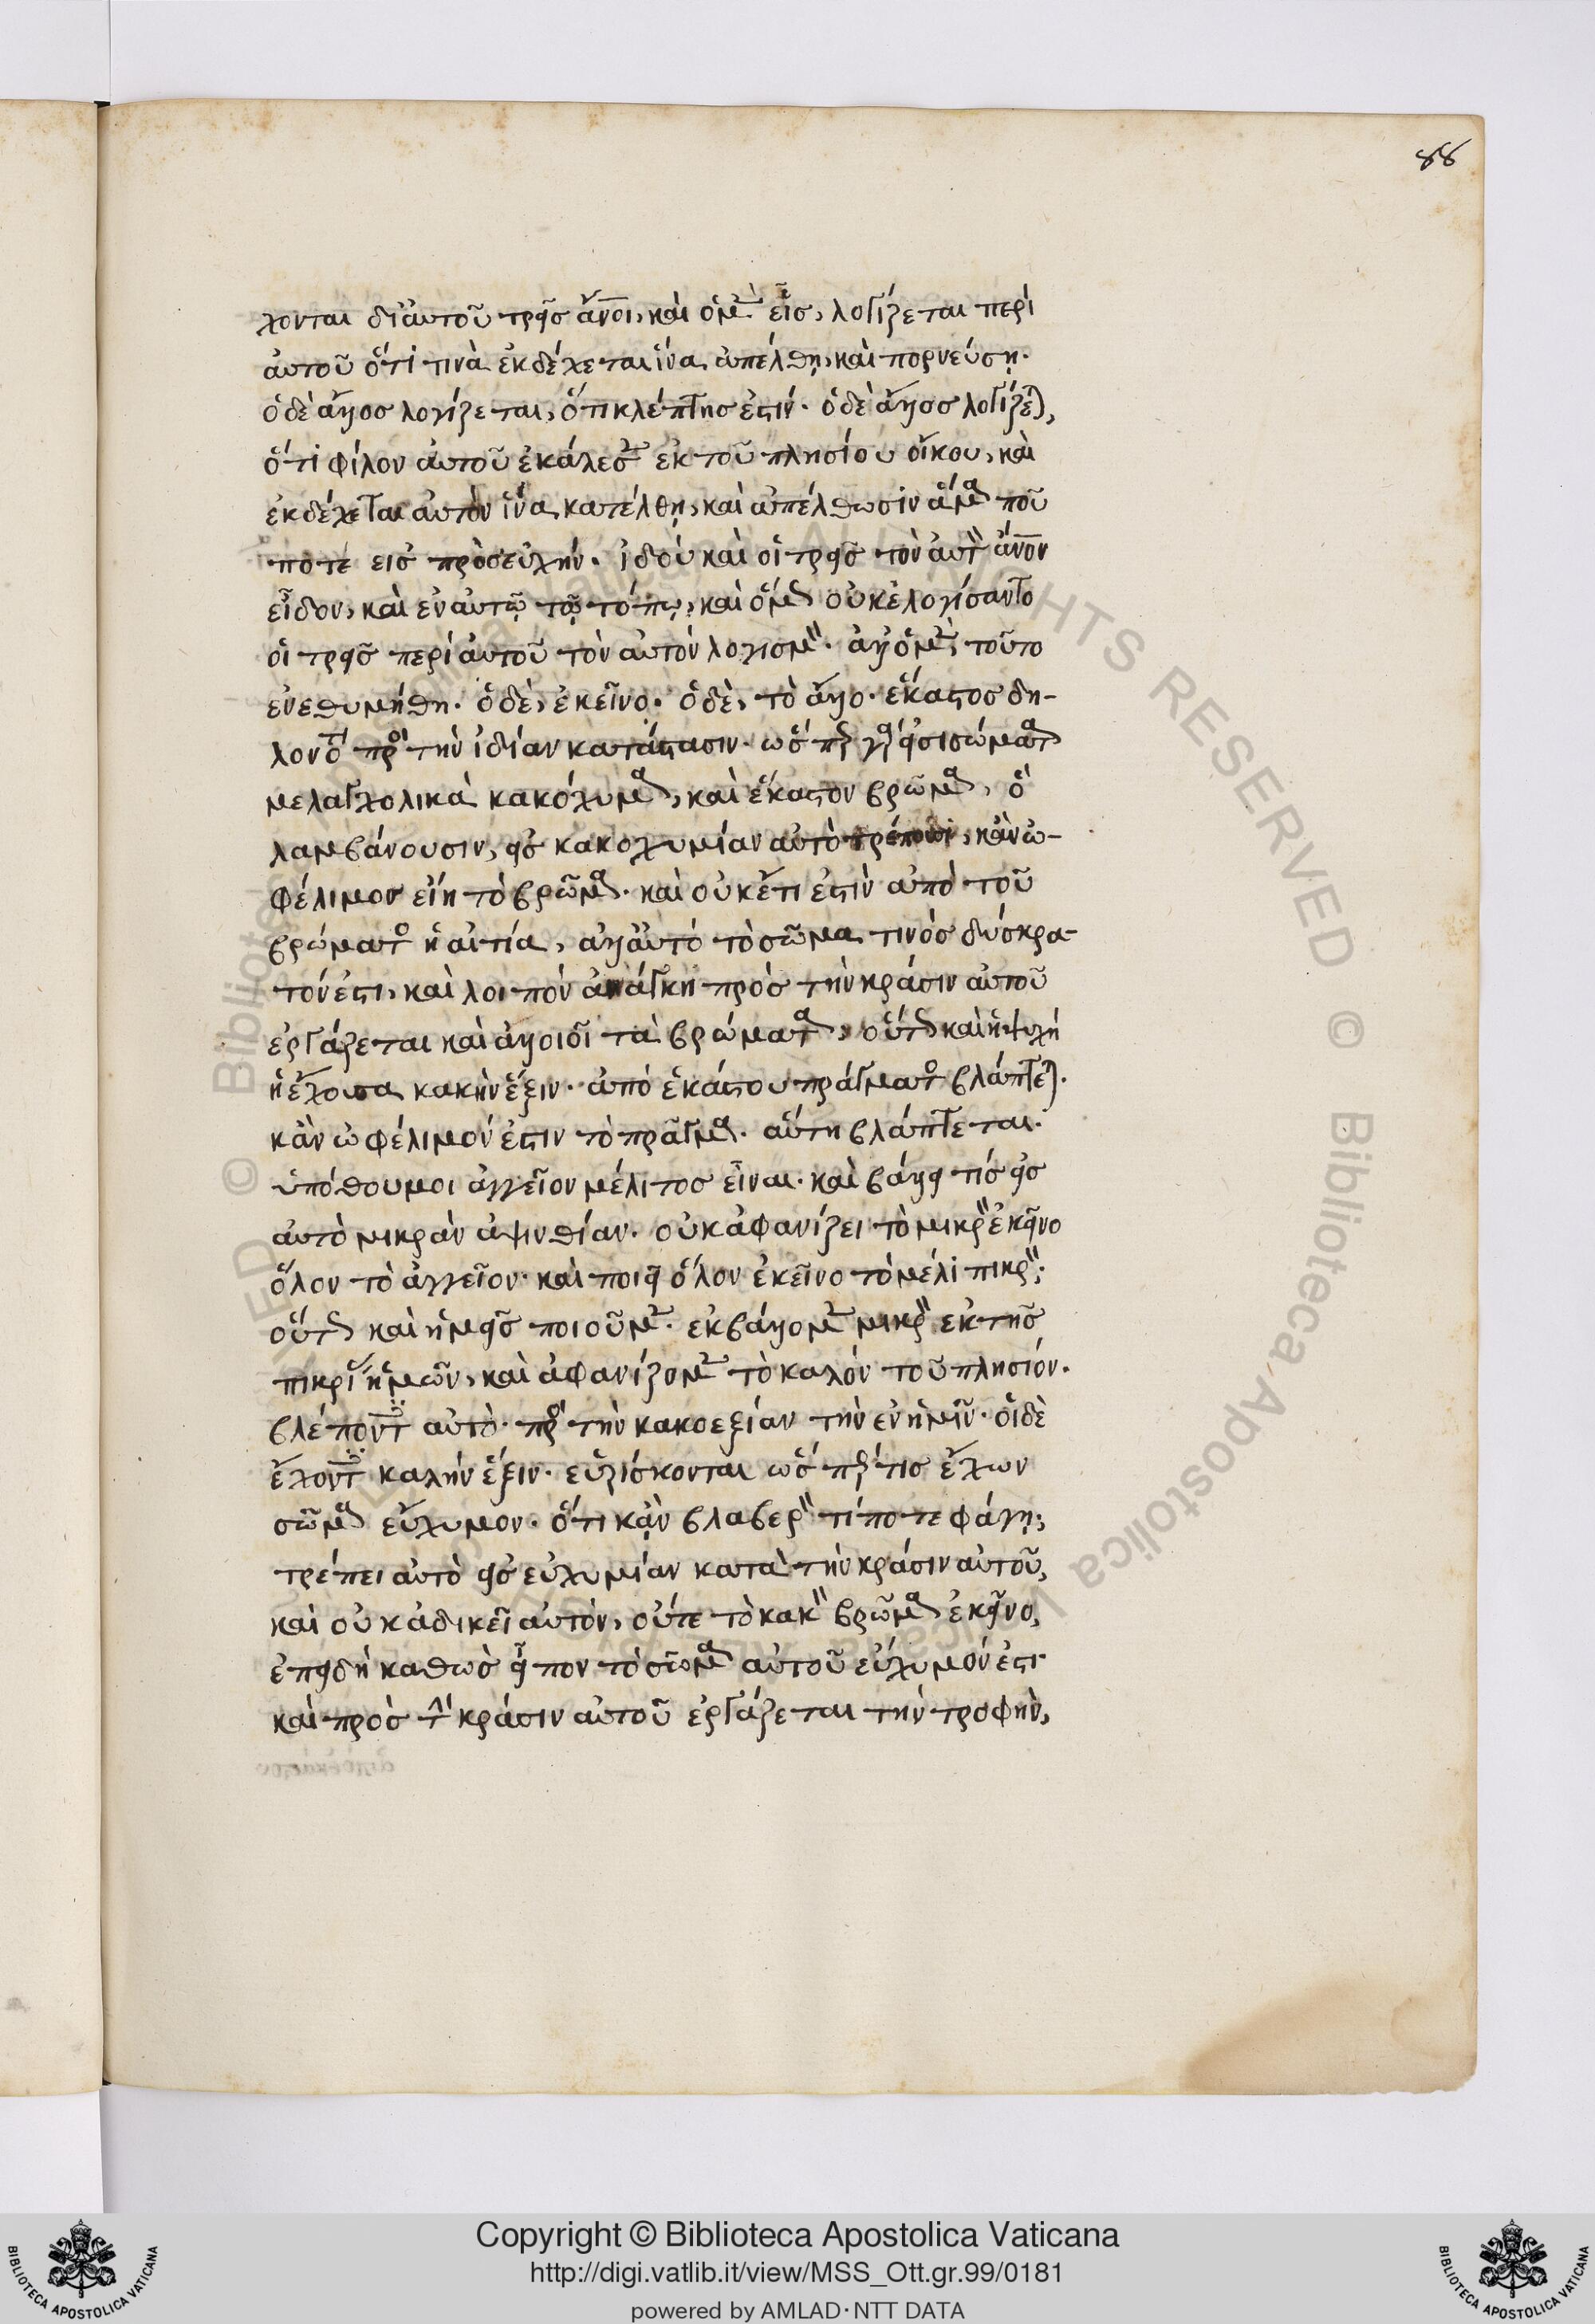 88
χονται δι αὐτοῦ τρεῖς ἄνοι, καὶ ὁ μὲν εἷς, λογίζεται περὶ
αὐτοῦ ὅτι τινὰ ἐκδέχεται ἵνα ἀπέλθῃ, καὶ πορνεύσῃ.
ὁ δὲ ἄλλος λογίζεται, ὅτι κλέπτης ἐστίν. ὁ δὲ ἄλλος λογίζεται,
ὅτι φίλον αὐτοῦ ἐκάλεσεν ἐκ τοῦ πλησίου οἴκου, καὶ
ἐκδέχεται αὐτὸν ἵνα κατέλθῃ, καὶ ἀπέλθωσιν ἅμα ποῦ
ποτε εἰς προσευχήν. ἰδοὺ καὶ οἱ τρεῖς τὸν αὐτὸν ἄνον
εἶδον, καὶ ἐν αὐτῷ τῷ τόπῳ, καὶ ὅμως οὐκ ἐλογίσαντο
οἱ τρεῖς περὶ αὐτοῦ τὸν αὐτὸν λογισμόν. ἀλλ ὁ μὲν, τοῦτο
ἐνεθυμήθη. ὁ δὲ, ἐκεῖνο. ὁ δὲ, τὸ ἄλλο. ἕκαστος δη-
λονότι πρὸς τὴν ἰδίαν κατάστασιν. ὥσπερ γάρ εἰσι σώματα
μελαγχολικὰ κακόχυμα, καὶ ἕκαστον βρῶμα, ὃ
λαμβάνουσιν, εἰς κακοχυμίαν αὐτὸ τρέπουσι, κἂν ὠ-
φέλιμον εἴη τὸ βρῶμα. καὶ οὐκέτι ἐστὶν ἀπὸ τοῦ
βρώματος ἡ αἰτία, ἀλλ αὐτὸ τὸ σῶμα τινὸς δύσκρα-
τόν ἐστι, καὶ λοιπὸν ἀνάγκη πρὸς τὴν κράσιν αὐτοῦ
ἐργάζεται καὶ ἀλλοιοῖ τὰ βρώματα, οὕτως καὶ ἡ ψυχὴ
ἡ ἔχουσα κακὴν ἕξιν. ἀπὸ ἑκάστου πράγματος βλάπτεται.
κἂν ὠφέλιμόν ἐστιν τὸ πρᾶγμα. αὕτη βλάπτεται.
ὑπόθου μοι ἀγγεῖον μέλιτος εἶναι. καὶ βάλλει τίς εἰς
αὐτὸ μικρὰν ἀψινθίαν. οὐκ ἀφανίζει τὸ μικρὸν ἐκεῖνο
ὅλον τὸ ἀγγεῖον. καὶ ποιεῖ ὅλον ἐκεῖνο τὸ μέλι πικρόν;
οὕτως καὶ ἡμεῖς ποιοῦμεν. ἐκβάλλομεν μικρὸν ἐκ τῆς
πικρίας ἡμῶν, καὶ ἀφανίζομεν τὸ καλὸν τοῦ πλησίον.
βλέποντες αὐτὸ. πρὸς τὴν κακοεξίαν τὴν ἐν ἡμῖν. οἱ δὲ
ἔχοντες καλὴν ἕξιν. εὑρίσκονται ὥσπερ τις ἔχων
σῶμα εὔχυμον. ὅτι κἂν βλαβερὸν τίποτε φάγῃ;
τρέπει αὐτὸ εἰς εὐχυμίαν κατὰ τὴν κράσιν αὐτοῦ,
καὶ οὐκ ἀδικεῖ αὐτὸν, οὔτε τὸ κακὸν βρῶμα ἐκεῖνο,
ἐπειδὴ καθὼς εἶπον τὸ σῶμα αὐτοῦ εὔχυμόν ἐστι
καὶ πρὸς τὴν κράσιν αὐτοῦ ἐργάζεται τὴν τροφὴν,
Copyright © Biblioteca Apostolica Vaticana
http://digi.vatlib.it/view/MSS_Ott.gr.99/0181
powered by AMLAD·NTT DATA